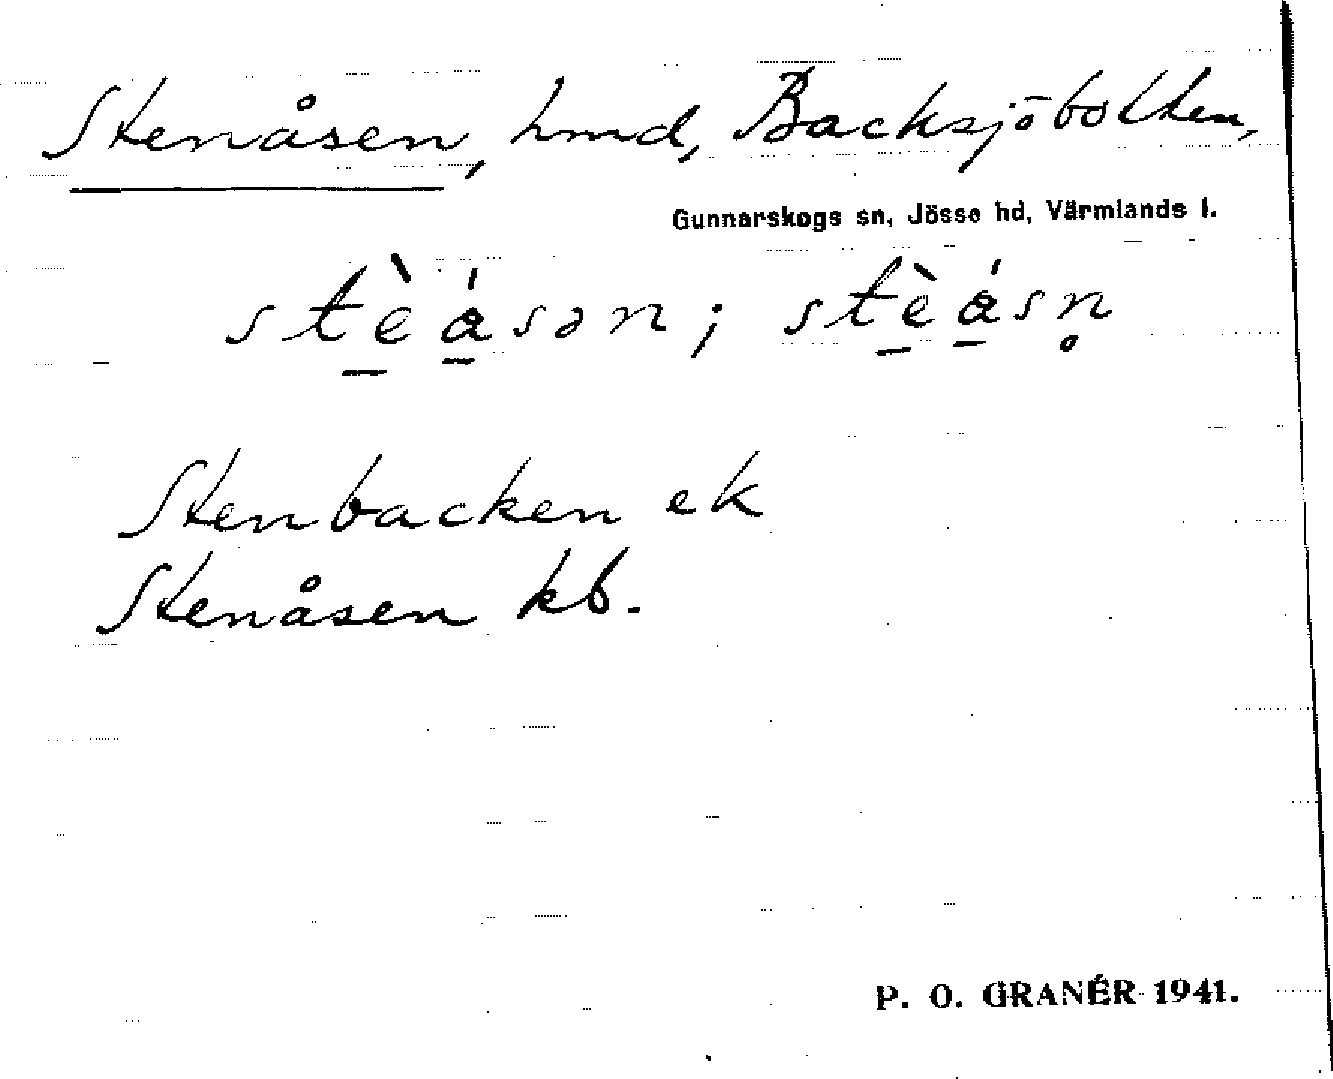 Stenåsen, hmd, Backsjöbotten,
Gunnarskogs sn, Jösse hd, Värmlands l.
stè̱á̱sən; stè̱á̱sn̥
Stenbacken ek
Stenåsen kb.
P. O. GRANÉR 1941.